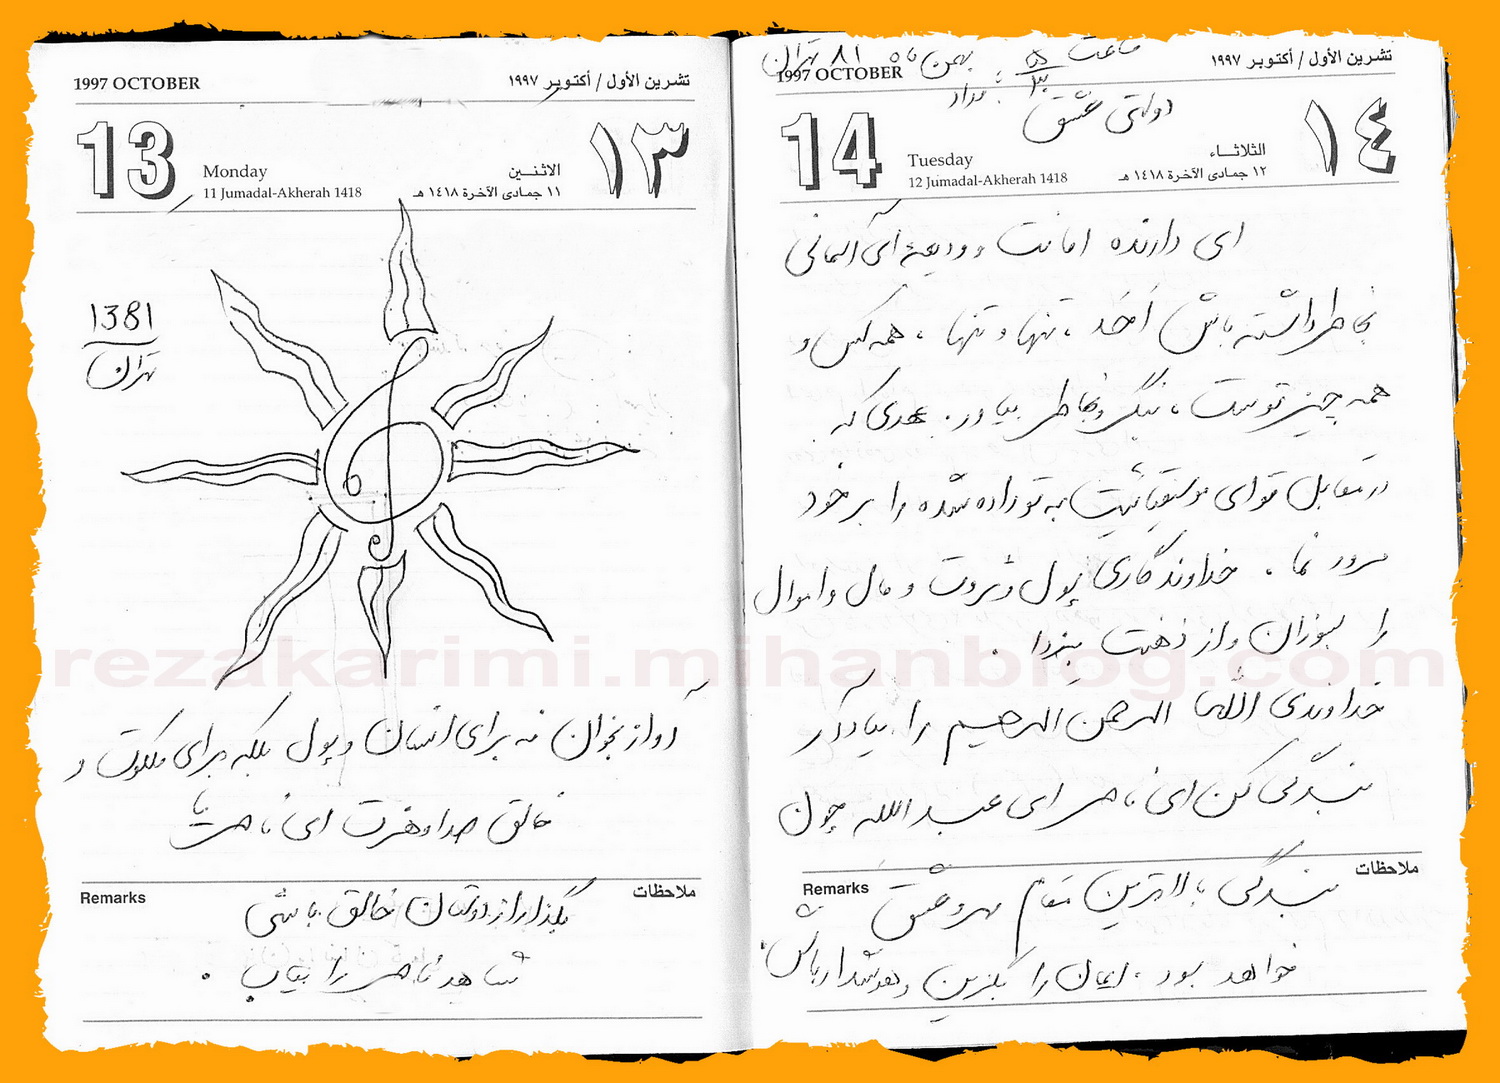 1997 OCTOBER
تشرين الأول / أكتوبر ١٩٩٧
13
Monday
11 Jumadal-Akherah 1418
الاثنين
١١ جمادى الآخرة ١٤١٨ هـ
١٣
1381
تهران
آواز بخوان نه برای انسان و پول بلکه برای ملکوت و
خالق صدا و هنرت ای ناصر تا
Remarks
ملاحظات
بگذار از دوستان خالق باشی
شاهد ناصر را بیاب .
ساعت بهمن ماه ۸۱ تهران
1997 OCTOBER
تشرين الأول / أكتوبر ١٩٩٧
بامداد
دولتی عشق
14
Tuesday
12 Jumadal-Akherah 1418
الثلاثـاء
١٢ جمادى الآخرة ١٤١٨ هـ
١٤
ای دارنده امانت و ودیعه آی آسمانی
بخاطر داشته باش اَحَد ، تنها و تنها ، همه کس و
همه چیز توست ، بنگر و بخاطر بیاور . عهدی که
در مقابل قوای موسیقیائیت به تو داده شده را بر خود
مرور نما . خداوندگاری پول و ثروت و مال و اموال
را بسوزان و از ذهنت بزدا .
خداوندی الله الرحمن الرحیم را بیادآر
بندگی کن ای ناصر ای عبدالله چون
Remarks
ملاحظات
بندگی بالاترین مقام مهر و عشق
خواهد بود . ایمان را بگزین و هوشدار باش .
rezakarimi.mihanblog.com